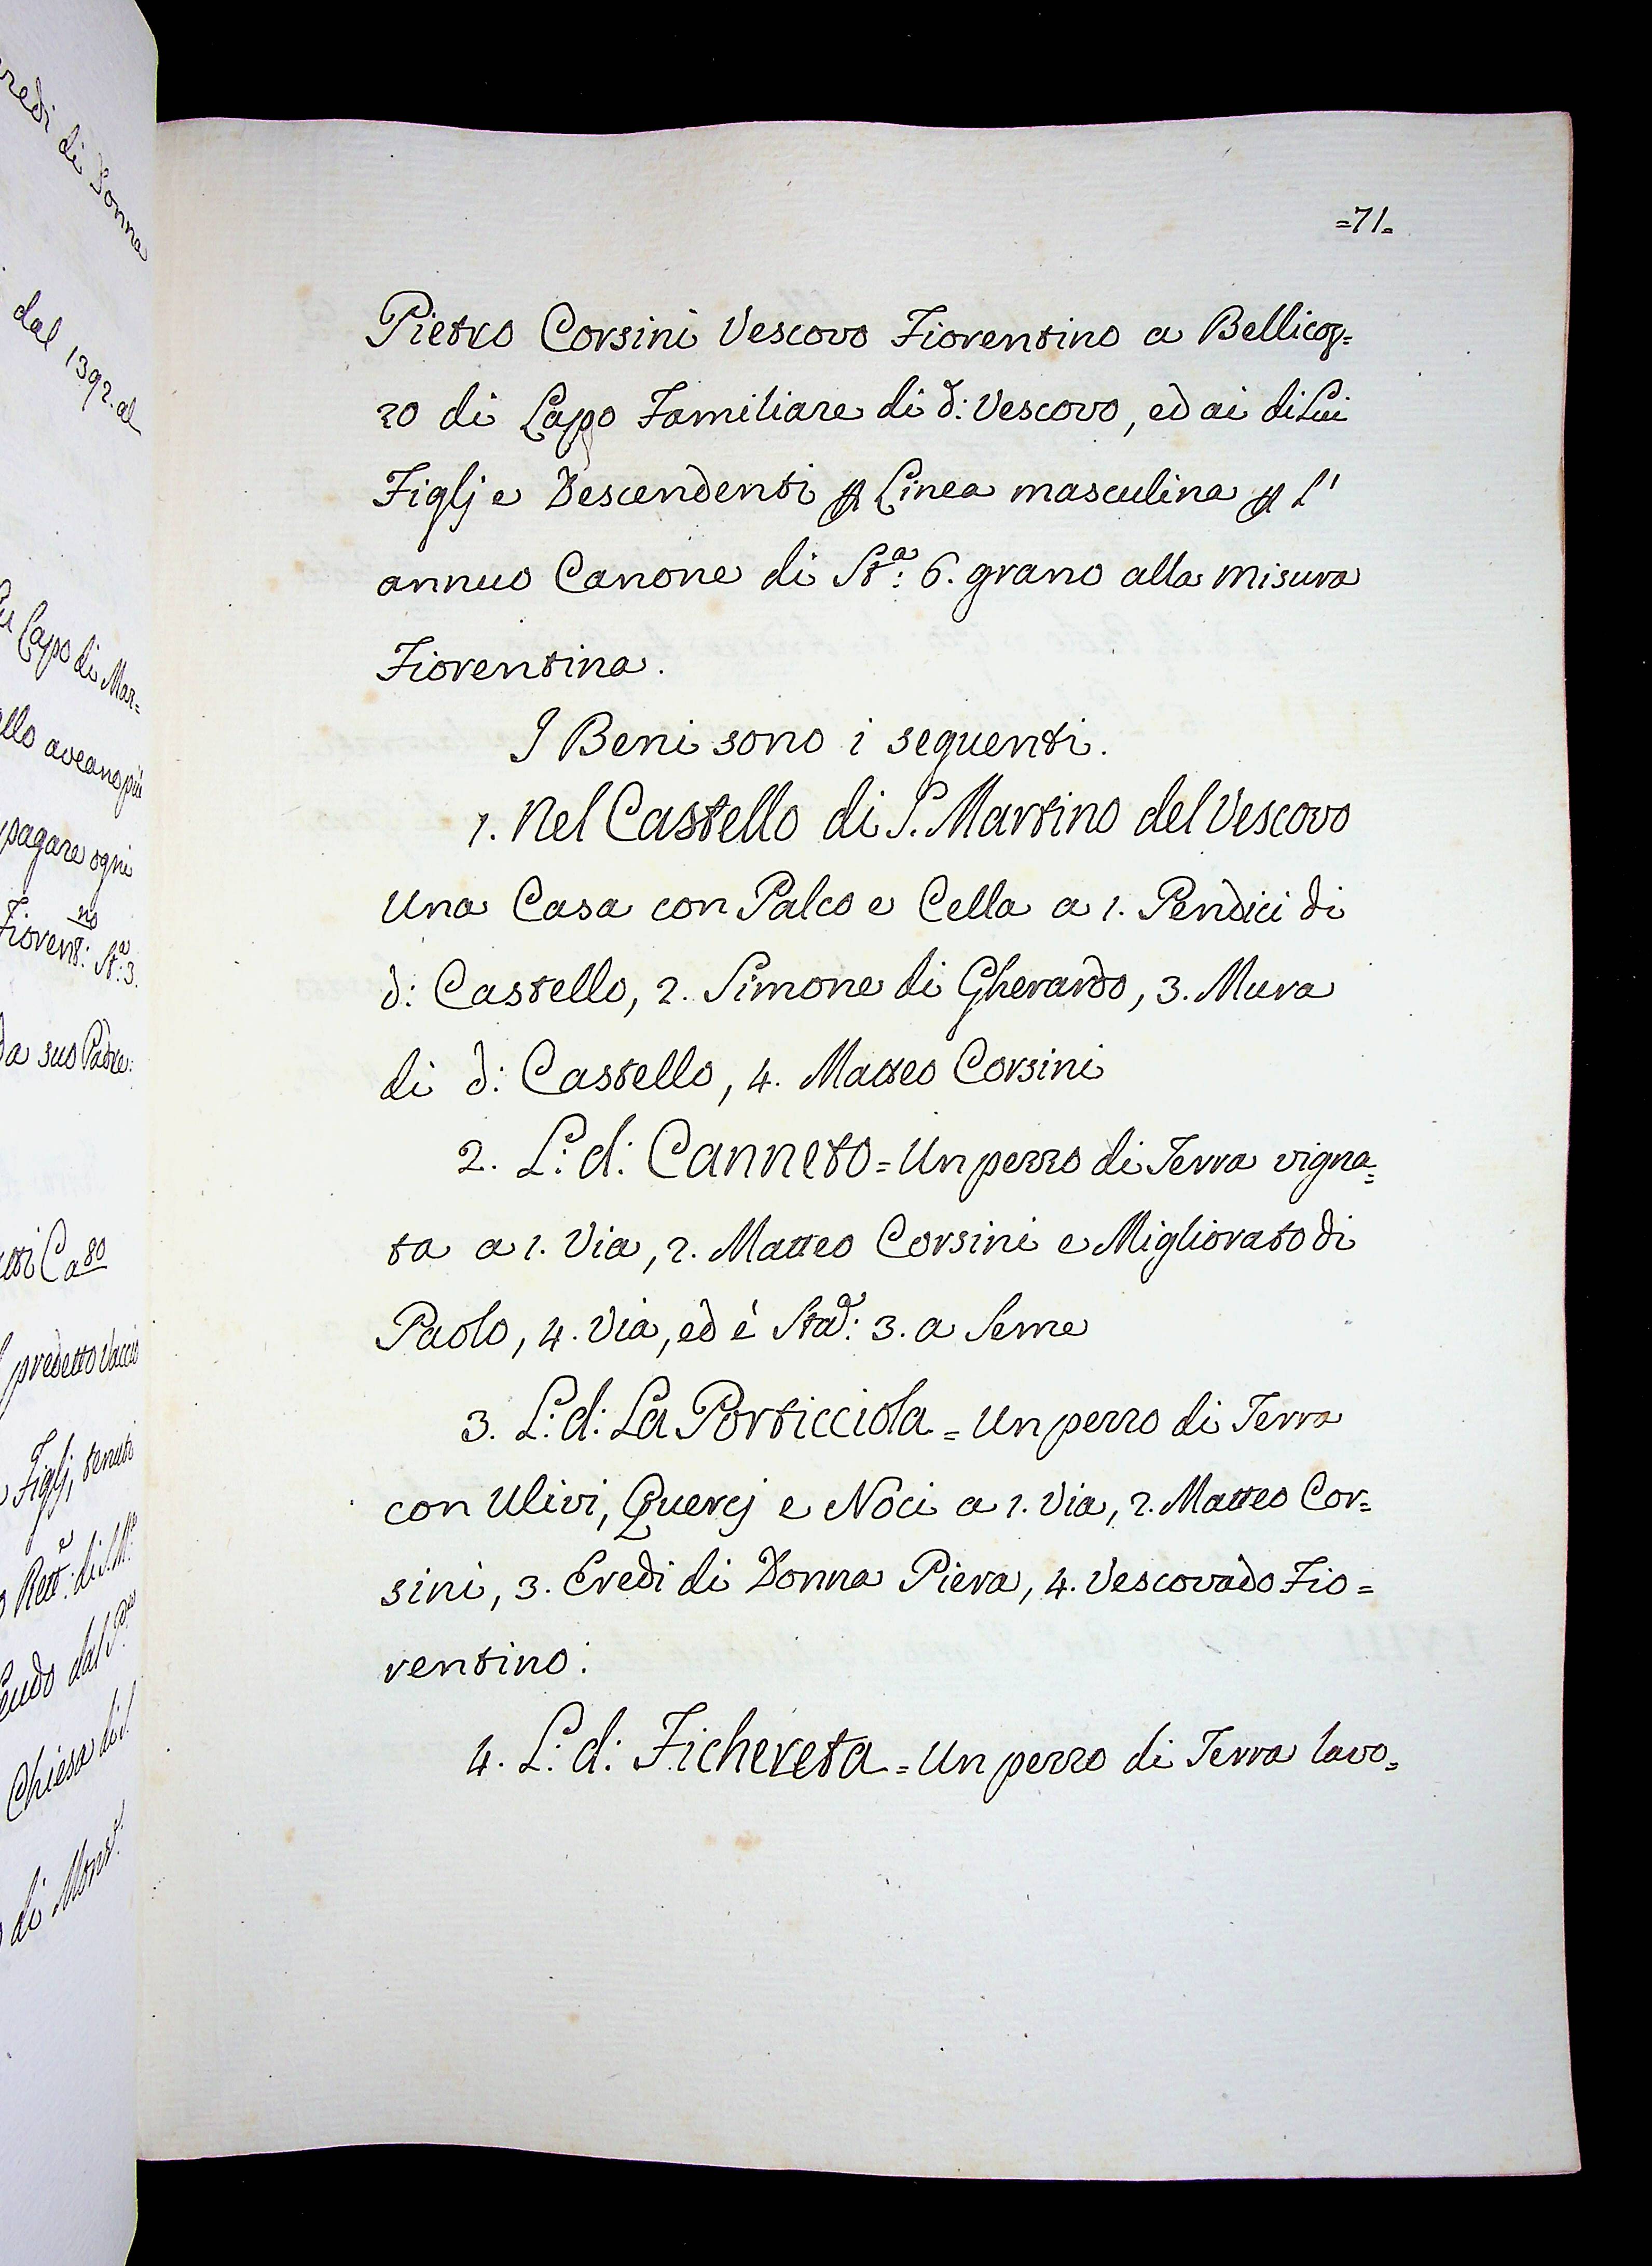 redi di Donna
dal 1392. al
Lapo di Mar=
ello aveano più
pagare ogni
Fiorent:no St:a 3.
Da suo Padre:
Ca 80
predetto Vaccio
Figlj, tenuto
Rett:e di S. M:a
feudo dal
Chiesa di S.
di Mont.
=71=
Pietro Corsini Vescovo Fiorentino a Bellicoz=
zo di Lapo Familiare di d: Vescovo, ed ai di Lui
Figlj e Descendenti p Linea masculina p l'
annuo Canone di St:a 6. grano alla misura
Fiorentina.
I Beni sono i seguenti.
1. Nel Castello di S. Martino del Vescovo
Una Casa con Palco e Cella a 1. Pendici di
d: Castello, 2. Simone di Gherardo, 3. Mura
di d: Castello, 4. Matteo Corsini
2. L: d: Canneto = Un pezzo di Terra vigna=
ta a 1. Via, 2. Matteo Corsini e Migliorato di
Paolo, 4. Via, ed è Stad:a 3. a Seme
3. L: d: La Porticciola = Un pezzo di Terra
con Ulivi, Quercj e Noci a 1. Via, 2. Matteo Cor=
sini, 3. Eredi di Donna Piera, 4. Vescovado Fio=
rentino:
4. L: d: Fichereta = Un pezzo di Terra lavo=